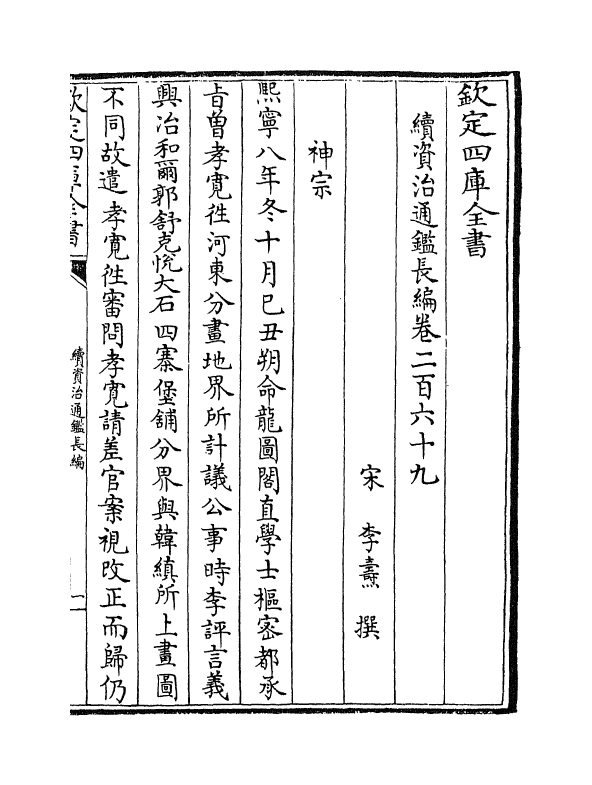 欽定四庫全書
續資治通鑑長編卷二百六十九
宋 李燾 撰
神宗
熙寧八年冬十月己丑朔命龍圖閣直學士樞密都承
㫖曽孝寛徃河東分畫地界所計議公事時李評言義
興冶和爾郭舒克悅大石四寨堡舖分界與韓縝所上畫圖
不同故遣孝寛徃審問孝寛請差官案視改正而歸仍
欽定四庫全書
續資治通鑑長編